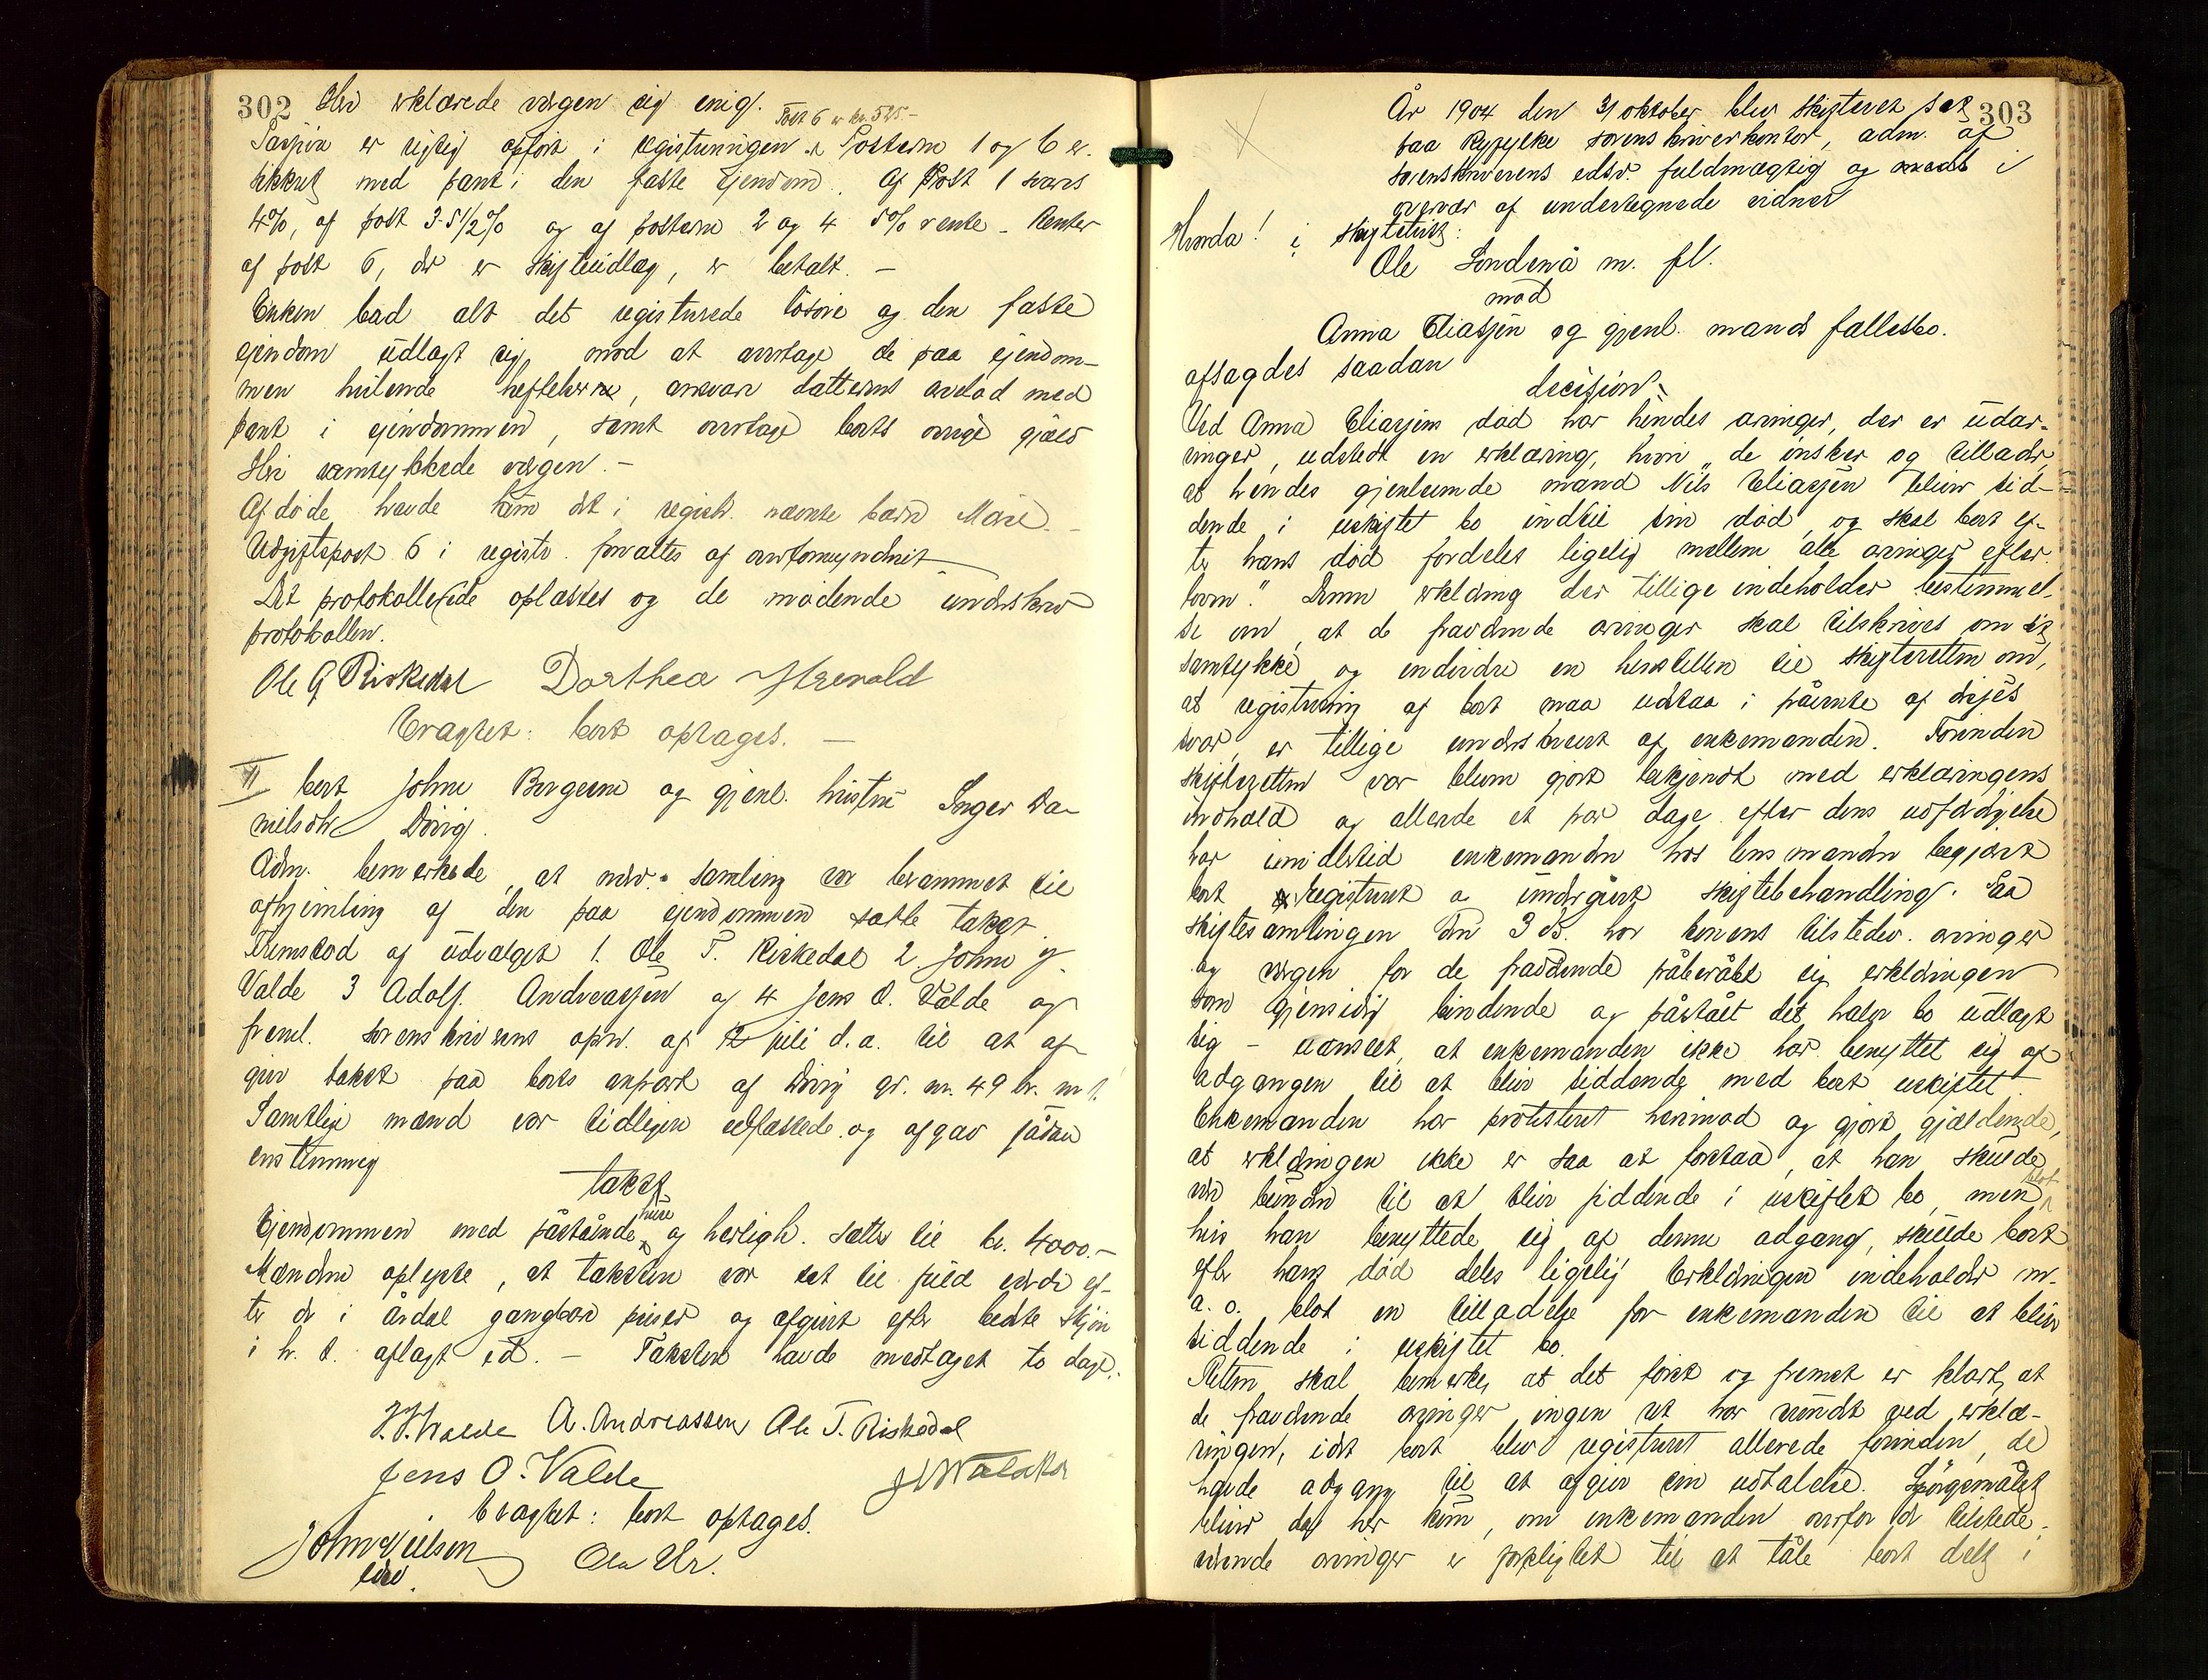 302
Heri erklærede vergen sig enig.
Post 6 er kr. 525.-
Passiva er rigtig opført i registreringen. Posterne 1 og 6 er
sikret med pant i den faste eiendom. Af Post 1 svares
4%, af post 3 5 1/2% og af posterne 2 og 4 5% rente. Renter
af post 6, der er skifteudlæg, er betalt. -
Enken bad alt det registrerede løsøre og den faste
eiendom udlagt sig, mod at overtage de paa eiendom-
men hvilende heftelser, ansvare datterens arvelod med
pant i eiendommen, samt overtage boets øvrige gjæld
Heri samtykkede vergen. -
Afdøde havde kun det i registr. nævnte barn Marie. -
Udgiftspost 6 i registr. forvaltes af overformynderiet
Det protokollerede oplæstes og de mødende underskrev
protokollen.
Ole G Riskedal Dorthea Hrenold
Eragtet: boet optages. -
II boet Johne Borgersen og gjenl. hustru Inger Da-
nielsdtr Døvig.
Adm. bemerkede, at nærv. samling var berammet til
afhjemling af den paa eiendommen satte takst.
Fremstod af udvalget 1. Ole T. Riskedal 2 Johne J.
Valde 3 Adolf Andreassen og 4 Jens O. Valde og
freml. sorenskriverens opn. af 12 juli d.a. til at af-
give takst paa boets anpart af Døvig gr. nr. 49 br. nr 1.
Samtlige mænd var tidligere edfæstede og afgav sådan
enstemmig
takst
Eiendommen med påstående huse og herligh. sættes til kr. 4000.-
Mændene oplyste, at taksten var sat til fuld værdi ef-
ter de i Årdal gangbare priser og afgivet efter bedste skjøn
i h. t. aflagt ed. - Taksten havde medtaget to dage.
J. J. Valde A. Andreassen Ole T. Riskedal
Jens O. Valde
Eragtet: boet optages.
John Nilsen Ola Ur.
303
År 1904 den 31 oktober blev skifteret sat
paa Ryfylke sorenskriverkontor, adm. af
sorenskriverens edsv. fuldmægtig og i
overvær af undertegnede vidner
Hvorda! i skiftetvist:
Ole Søndenå m. fl.
mod
Anna Eliassen og gjenl. mands fællesbo.
afsagdes saadan
decision:
Ved Anna Eliassens død har hendes arvinger, der er udar-
vinger, udstedt en erklæring, hvori "de ønsker og tillader,
at hendes gjenlevende mand Nils Eliassen bliver sid-
dende i uskiftet bo indtil sin død, og skal boet ef-
ter hans død fordeles ligelig mellem alle arvinger efter
loven." Denne erklæring der tillige indeholder bestemmel-
se om, at de fraværende arvinger skal tilskrives om sit
samtykke og endvidere en henstillen til skifteretten om,
at registrering af boet maa udstaa i påvente af disses
svar, er tillige underskrevet af enkemanden. Forinden
skifteretten var bleven gjort bekjendt med erklæringens
indhold og allerede et par dage efter dens udfærdigelse
har imidlertid enkemanden hos lensmanden begjært
boet registreret og undergivet skiftebehandling. Paa
skiftesamlingen den 3 ds. har konens tilstedev. arvinger
og vergen for de fraværende påberåbt sig erklæringen
som gjensidig bindende og påstået det halve bo udlagt
sig - uanseet, at enkemanden ikke har benyttet sig af
adgangen til at blive siddende med boet uskiftet.
Enkemanden har protesteret herimod og gjort gjældende,
at erklæringen ikke er saa at forstaa, at han skulde
være bunden til at blive siddende i uskiftet bo, men blot
hvis han benyttede sig af denne adgang, skulde boet
efter hans død deles ligelig Erklæringen indeholder m.
a. o. blot en tilladelse for enkemanden til at blive
siddende i uskiftet bo.
Retten skal bemerke, at det først og fremst er klart, at
de fraværende arvinger ingen ret har vundet ved erklæ-
ringen, idet boet blev registreret allerede forinden, de
havde adgang til at afgive sin udtalelse. Spørgsmålet
bliver da her kun, om enkemanden overfor de tilstede-
værende arvinger er forpligtet til at tåle boet delt i